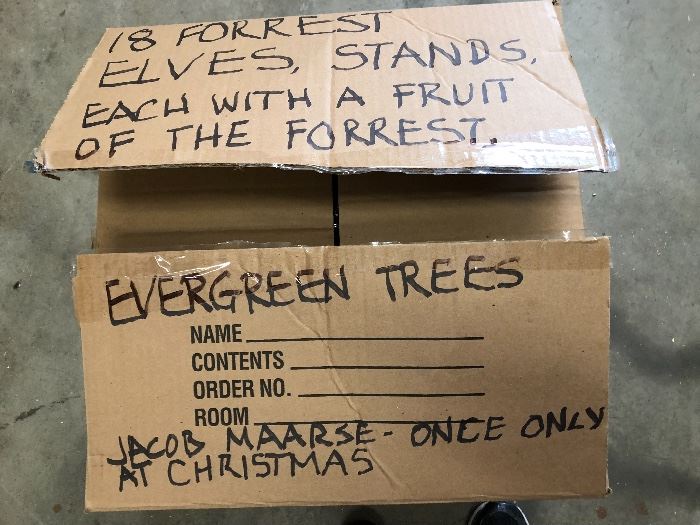 18 FORREST
ELVES, STANDS,
EACH WITH A FRUIT
OF THE FORREST.
EVERGREEN TREES
NAME
CONTENTS
ORDER NO.
ROOM
JACOB MAARSE - ONCE ONLY
AT CHRISTMAS